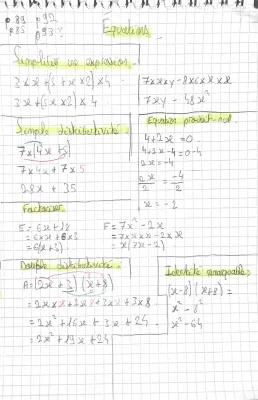 p89 p92
p85 p93 ?
Equations
Simplifier une expression.
3 × x + (5 + x × 2) × 4
3x + (5x × 2) × 4
7 × x × y - 8 × 6 × x × x
7xy - 48x²
Simple distributivité :
7 × (4x + 5)
7 × 4x + 7 × 5
28x + 35
Equation produit-nul
4 + 2x = 0
4 + 2x - 4 = 0 - 4
2x = -4
2x/2 = -4/2
x = -2
Factoriser
E = 6x + 18
= 6 × x + 6 × 3
= 6(x + 3)
F = 7x² - 2x
= 7 × x × x - 2 × x
= x(7x - 2)
Double distributivité :
A = (2x + 3)(x + 8)
= 2x × x + 2x × 8 + 3 × x + 3 × 8
= 2x² + 16x + 3x + 24
= 2x² + 19x + 24
Identité remarquable :
(x - 8)(x + 8) =
x² - 8²
x² - 64